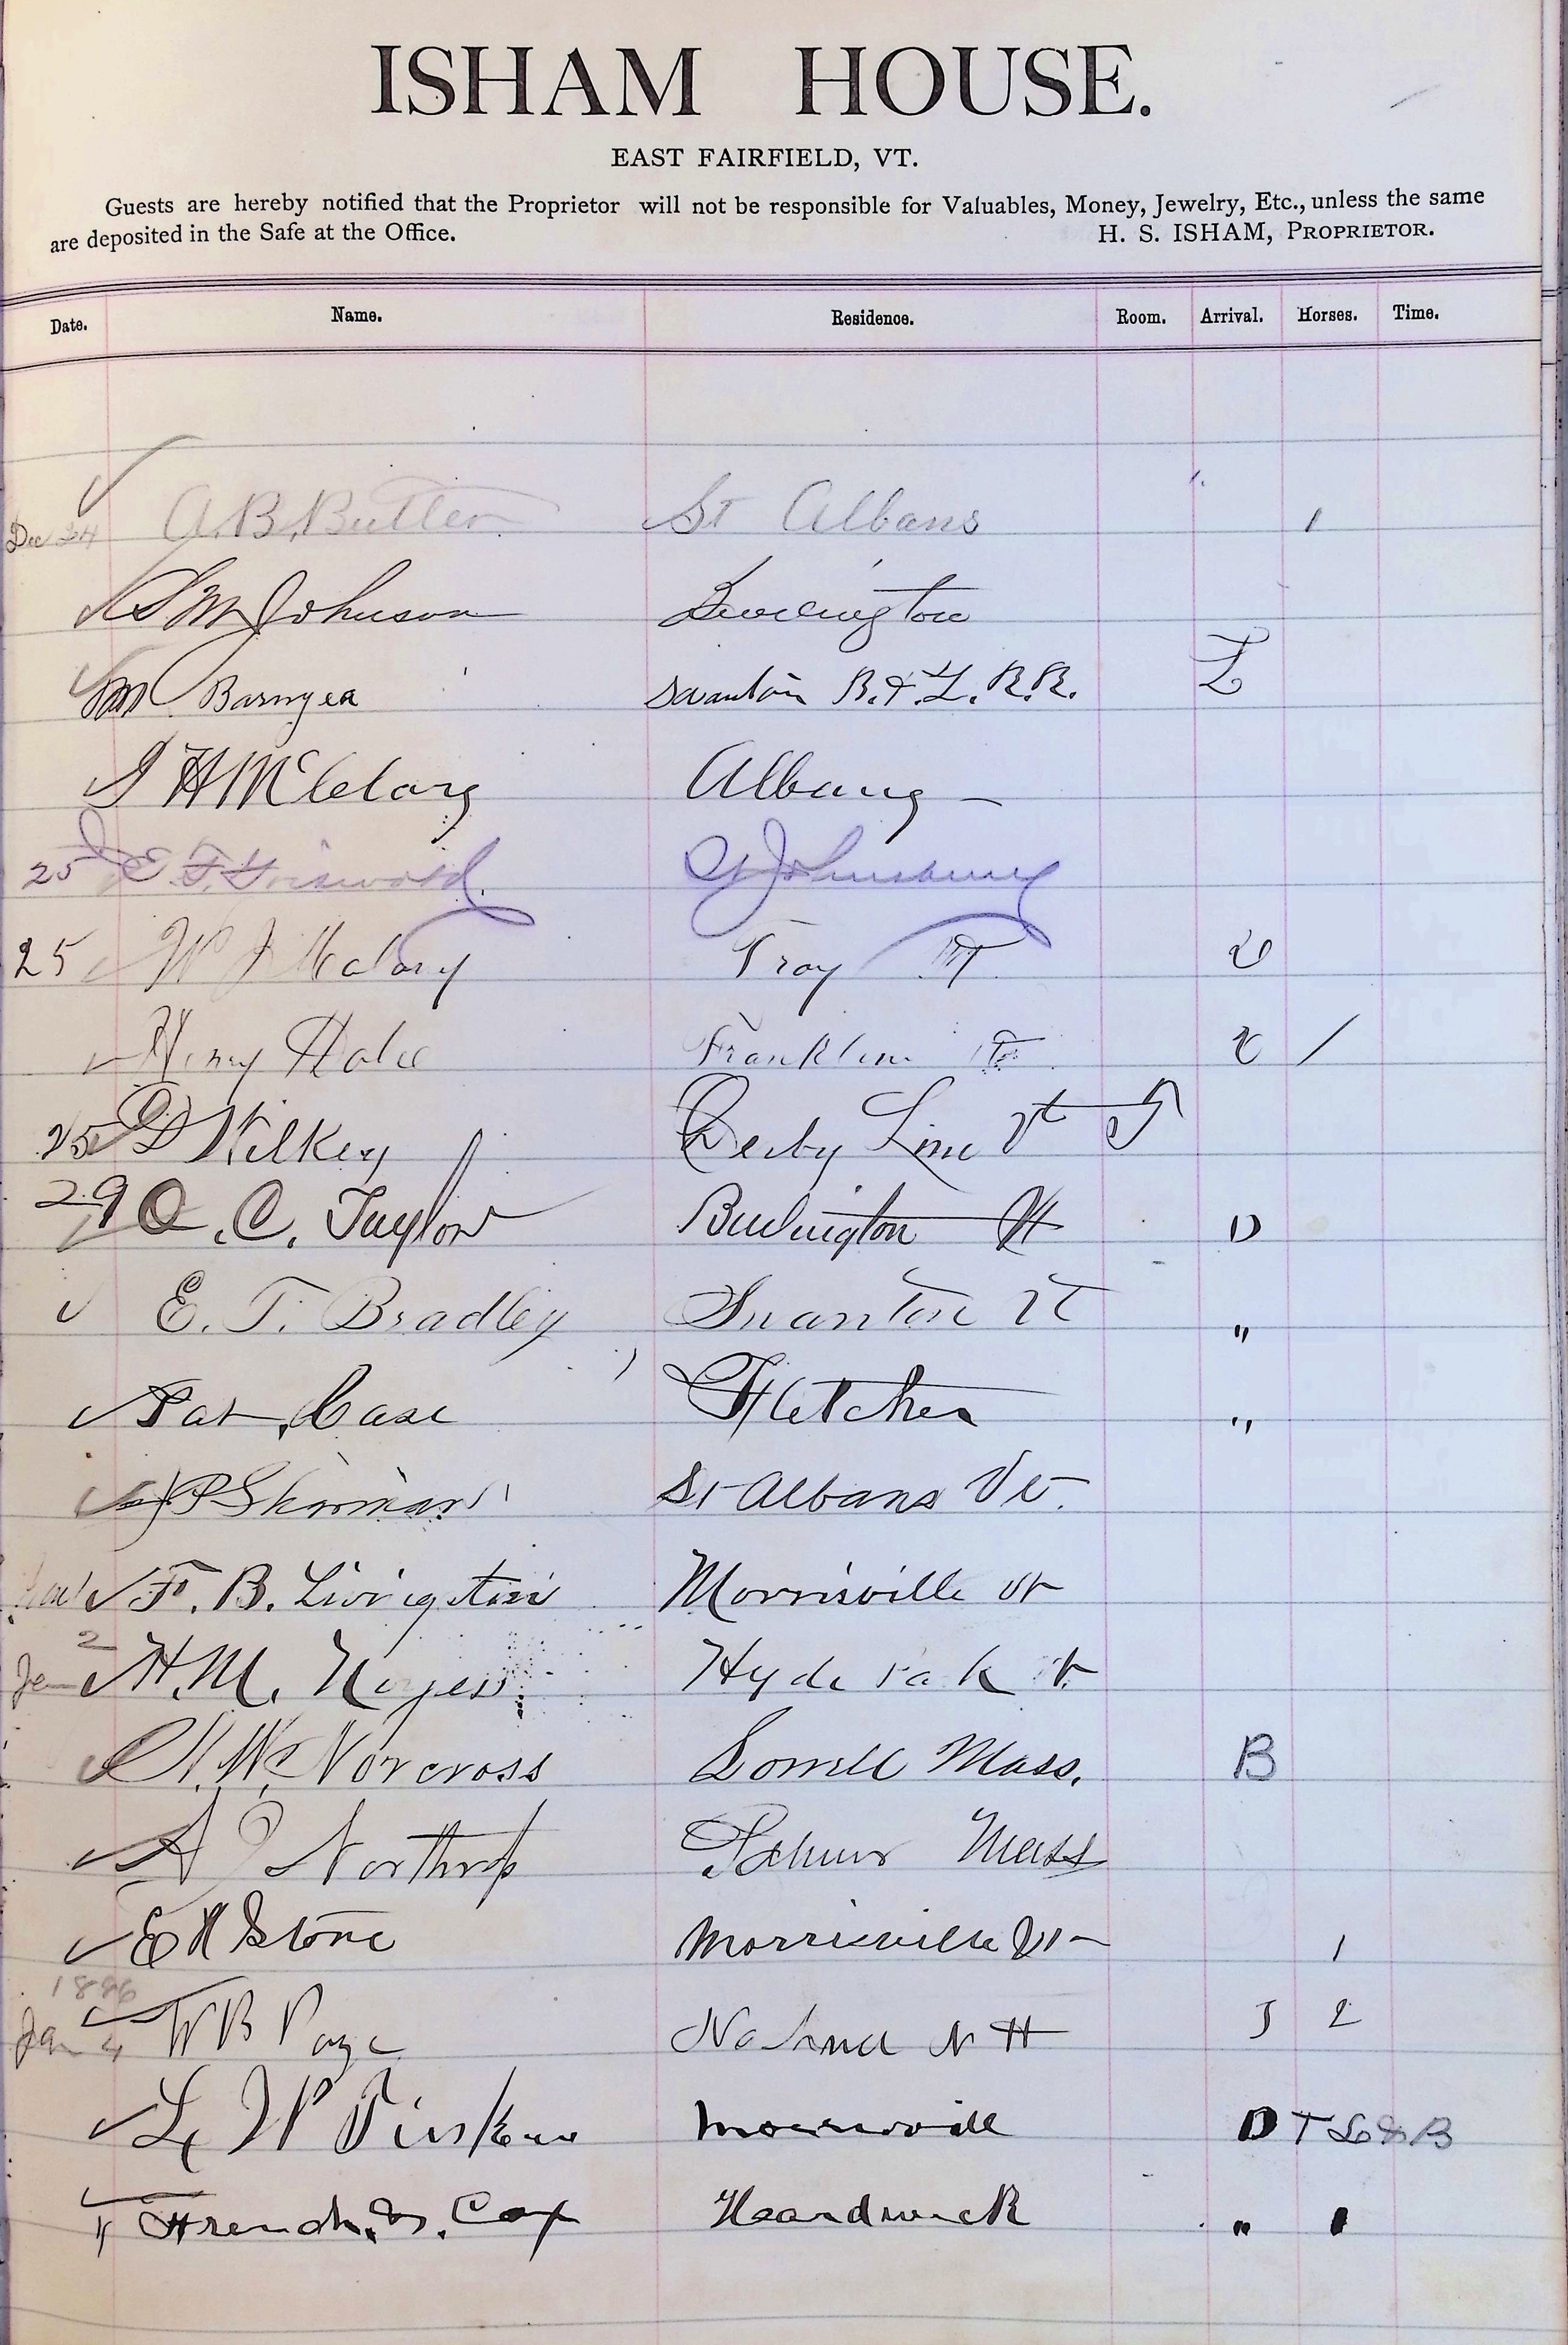 ISHAM HOUSE.
EAST FAIRFIELD, VT.
Guests are hereby notified that the Proprietor will not be responsible for Valuables, Money, Jewelry, Etc., unless the same
are deposited in the Safe at the Office. H. S. ISHAM, PROPRIETOR.
Date. Name. Residence. Room. Arrival. Horses. Time.
Dec 24 A. B. Butler St Albans 1
S M Johnson Burlington
M Barnyea Swanton B. & L. R. R. L
H McClary Albany
25 E. F. Griswold. St Johnsbury
25 W J Troy Vt
Henry Franklin Vt /
25 D Wilkey Derby Line Vt
29 O. C. Taylor Burlington Vt D
E. T. Bradley Swanton Vt "
Case Fletcher "
J P Sherman St Albans Vt.
F. B. Livingston Morrisville Vt
Jan 2 H. M. Noyes Hyde Park Vt.
W. Norcross Lowell Mass. B
A J Northrop Mass
E H Stone Morrisville Vt 1
1886
Jan 4 W B Page Nashua N H 2
L W Morrisville D T L & B
" French & Cox Heardwick " 1